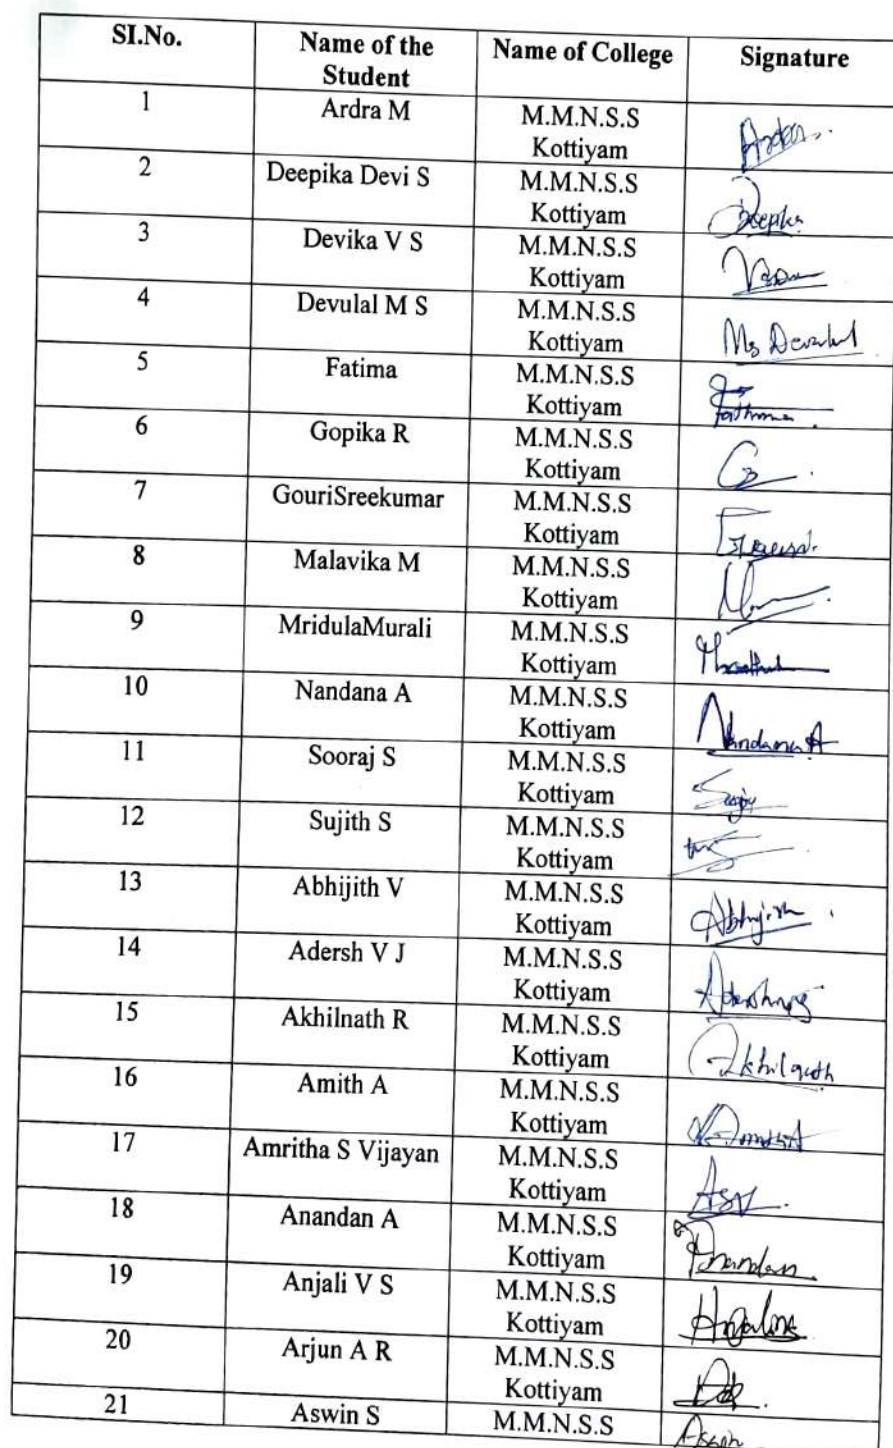 SI.No. Name of the Student Name of College Signature
1 Ardra M M.M.N.S.S Kottiyam
2 Deepika Devi S M.M.N.S.S Kottiyam Deepika
3 Devika V S M.M.N.S.S Kottiyam
4 Devulal M S M.M.N.S.S Kottiyam Ms Devulal
5 Fatima M.M.N.S.S Kottiyam
6 Gopika R M.M.N.S.S Kottiyam
7 GouriSreekumar M.M.N.S.S Kottiyam
8 Malavika M M.M.N.S.S Kottiyam
9 MridulaMurali M.M.N.S.S Kottiyam
10 Nandana A M.M.N.S.S Kottiyam Nandana A
11 Sooraj S M.M.N.S.S Kottiyam
12 Sujith S M.M.N.S.S Kottiyam
13 Abhijith V M.M.N.S.S Kottiyam Abhijith
14 Adersh V J M.M.N.S.S Kottiyam
15 Akhilnath R M.M.N.S.S Kottiyam Akhilnath
16 Amith A M.M.N.S.S Kottiyam
17 Amritha S Vijayan M.M.N.S.S Kottiyam ASV
18 Anandan A M.M.N.S.S Kottiyam Anandan
19 Anjali V S M.M.N.S.S Kottiyam
20 Arjun A R M.M.N.S.S Kottiyam
21 Aswin S M.M.N.S.S